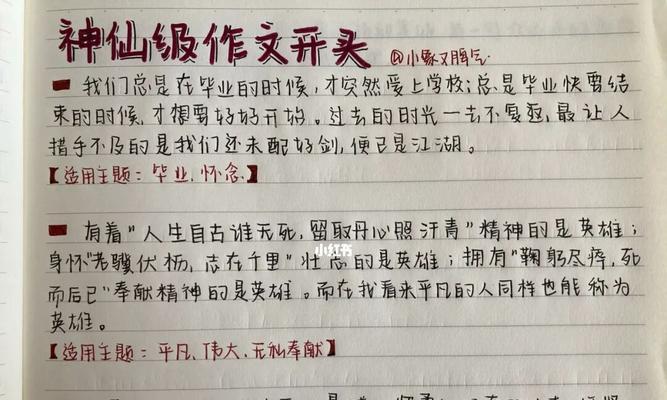 神仙级作文开头 @小象又脾气.
我们总是在毕业的时候,才突然爱上学校;总是毕业快要结
束的时候,才想要好好开始。过去的时光一去不复返,最让人
措手不及的是我们还未配好剑,便已是江湖。
【适用主题:毕业.怀念】
有着"人生自古谁无死,留取丹心照汗青"精神的是英雄;
小红书
身怀"老骥伏枥,志在千里"壮志的是英雄;拥有"鞠躬尽瘁,死
而后已"奉献精神的是英雄。而在我看来平凡的人同样也能称为
英雄。
【适用主题:平凡、伟大、无私奉献】